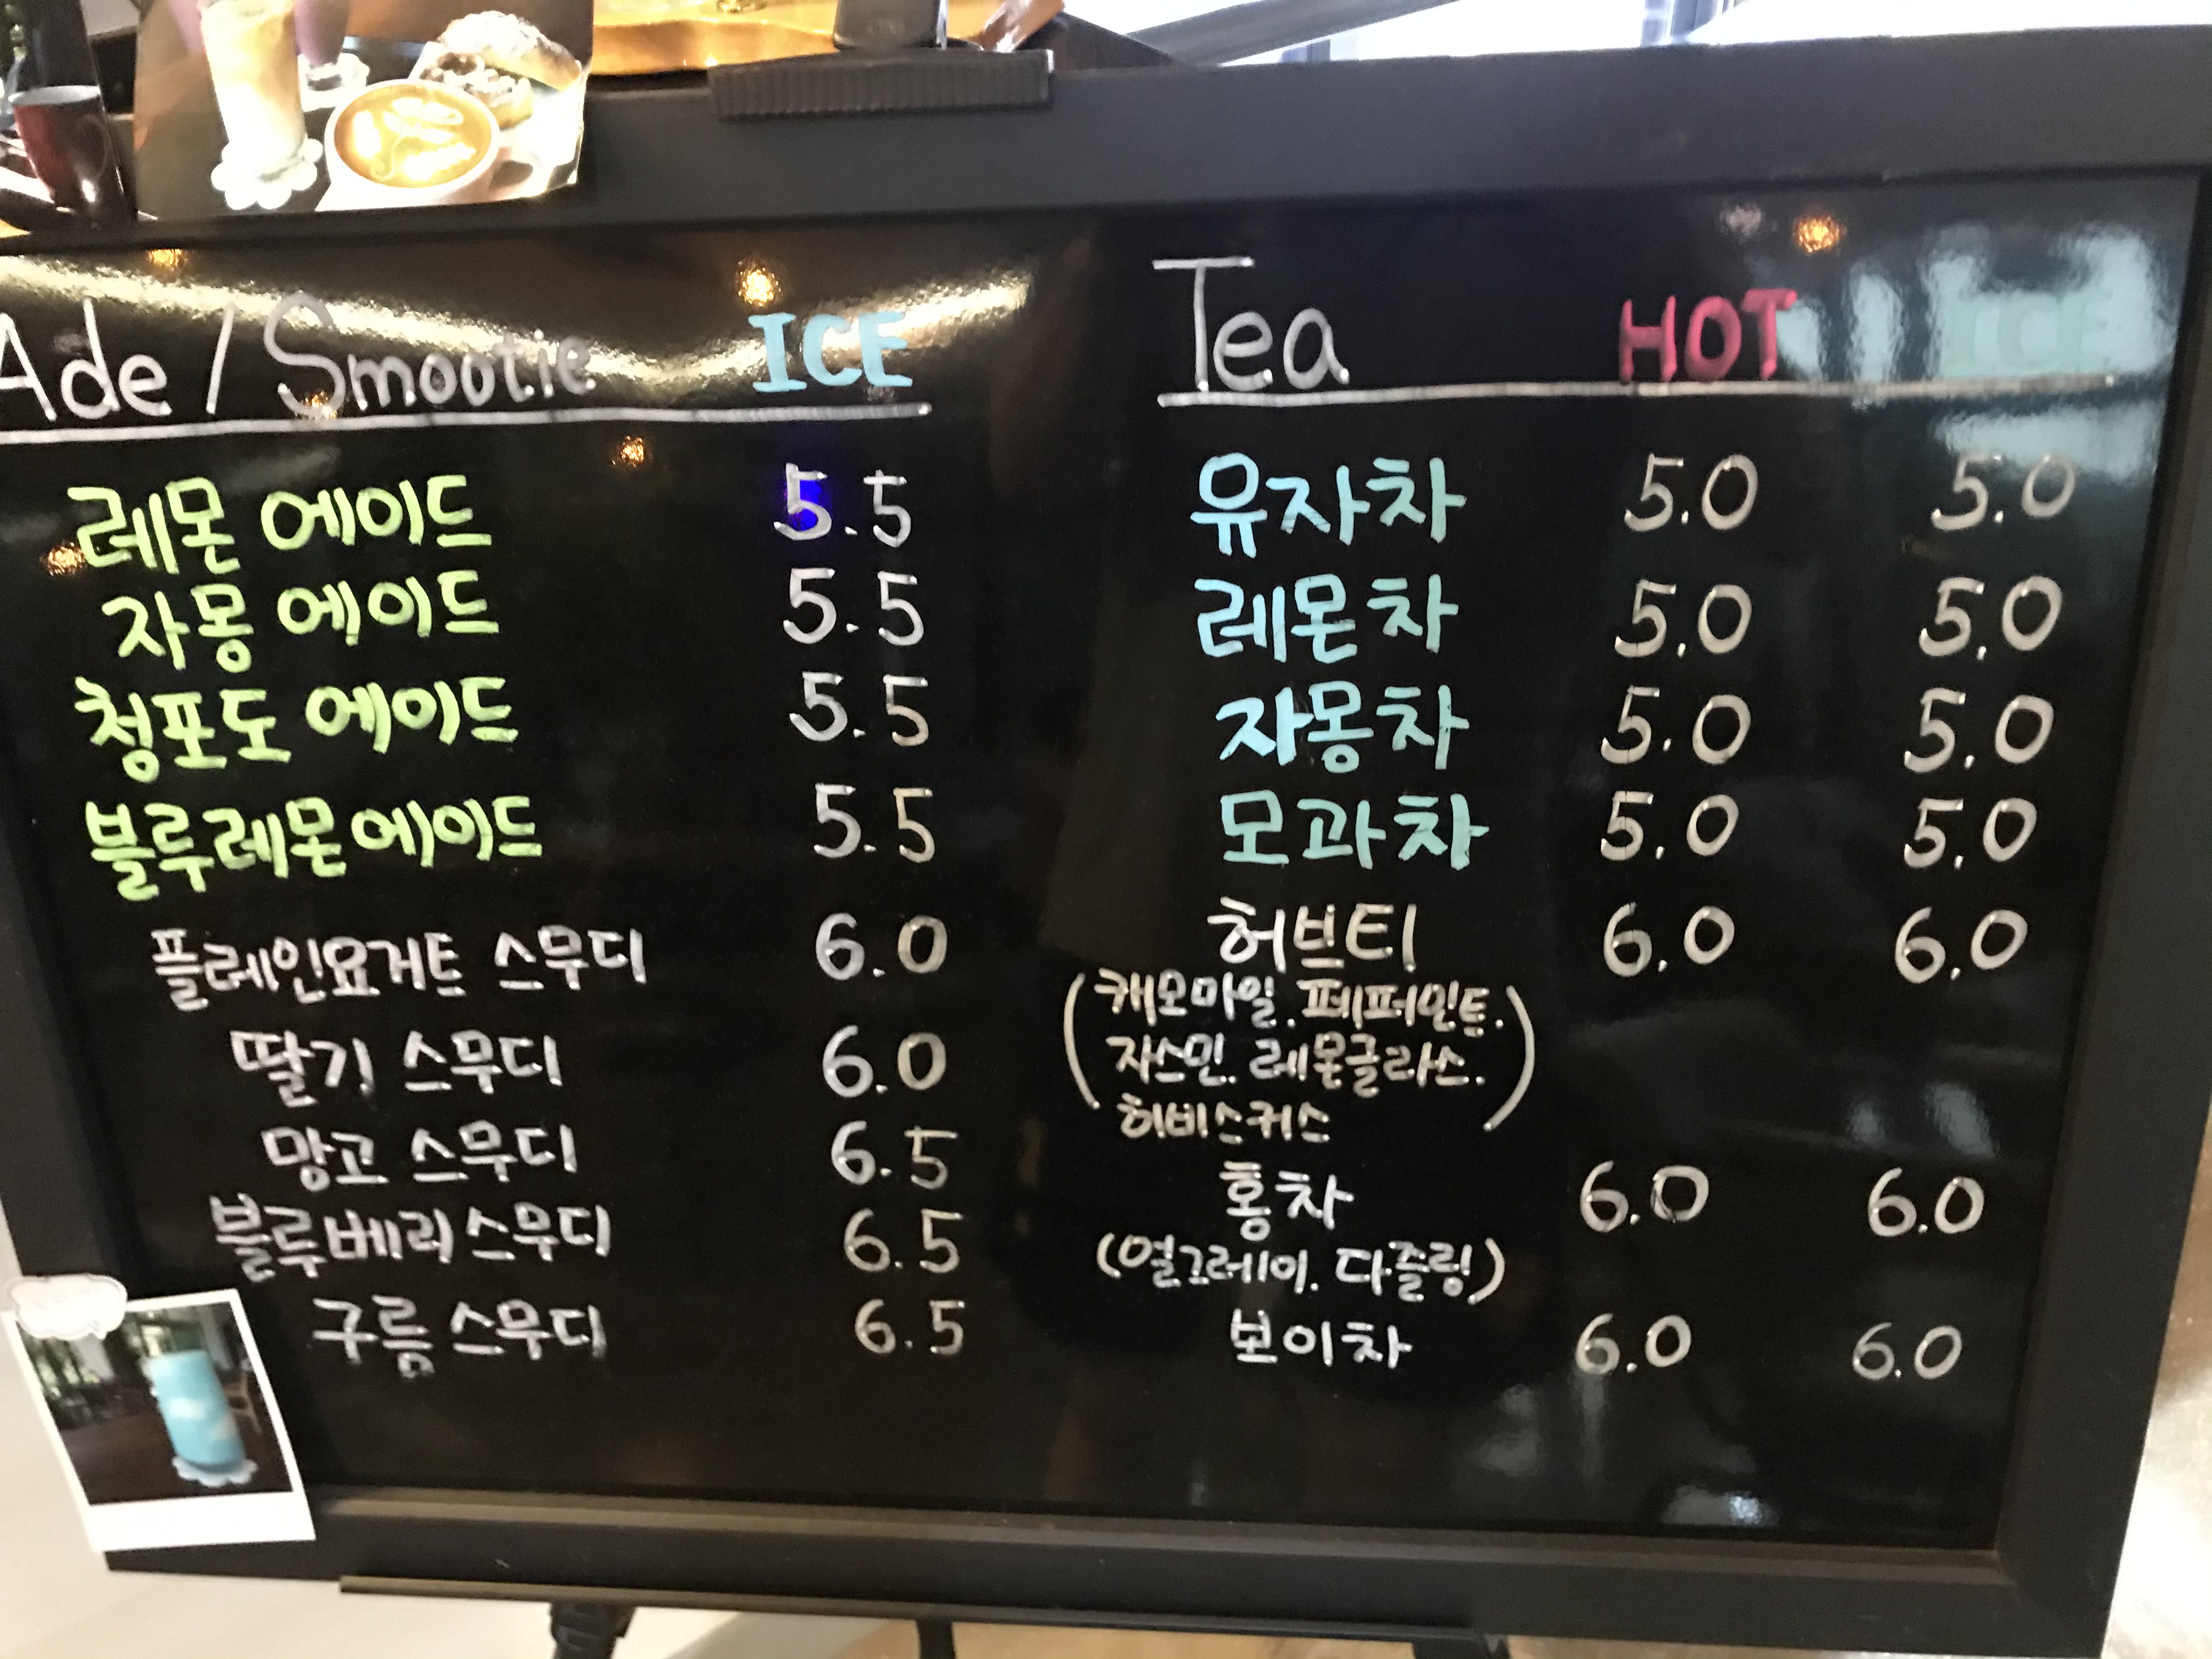 Ade / Smootie ICE
레몬 에이드 5.5
자몽 에이드 5.5
청포도 에이드 5.5
블루레몬에이드 5.5
플레인요거트 스무디 6.0
딸기 스무디 6.0
망고 스무디 6.5
블루베리스무디 6.5
구름 스무디 6.5
Tea HOT ICE
유자차 5.0 5.0
레몬차 5.0 5.0
자몽차 5.0 5.0
모과차 5.0 5.0
허브티 6.0 6.0
(캐모마일. 페퍼민트.
자스민. 레몬글라스.
히비스커스)
홍차 6.0 6.0
(얼그레이. 다즐링)
보이차 6.0 6.0